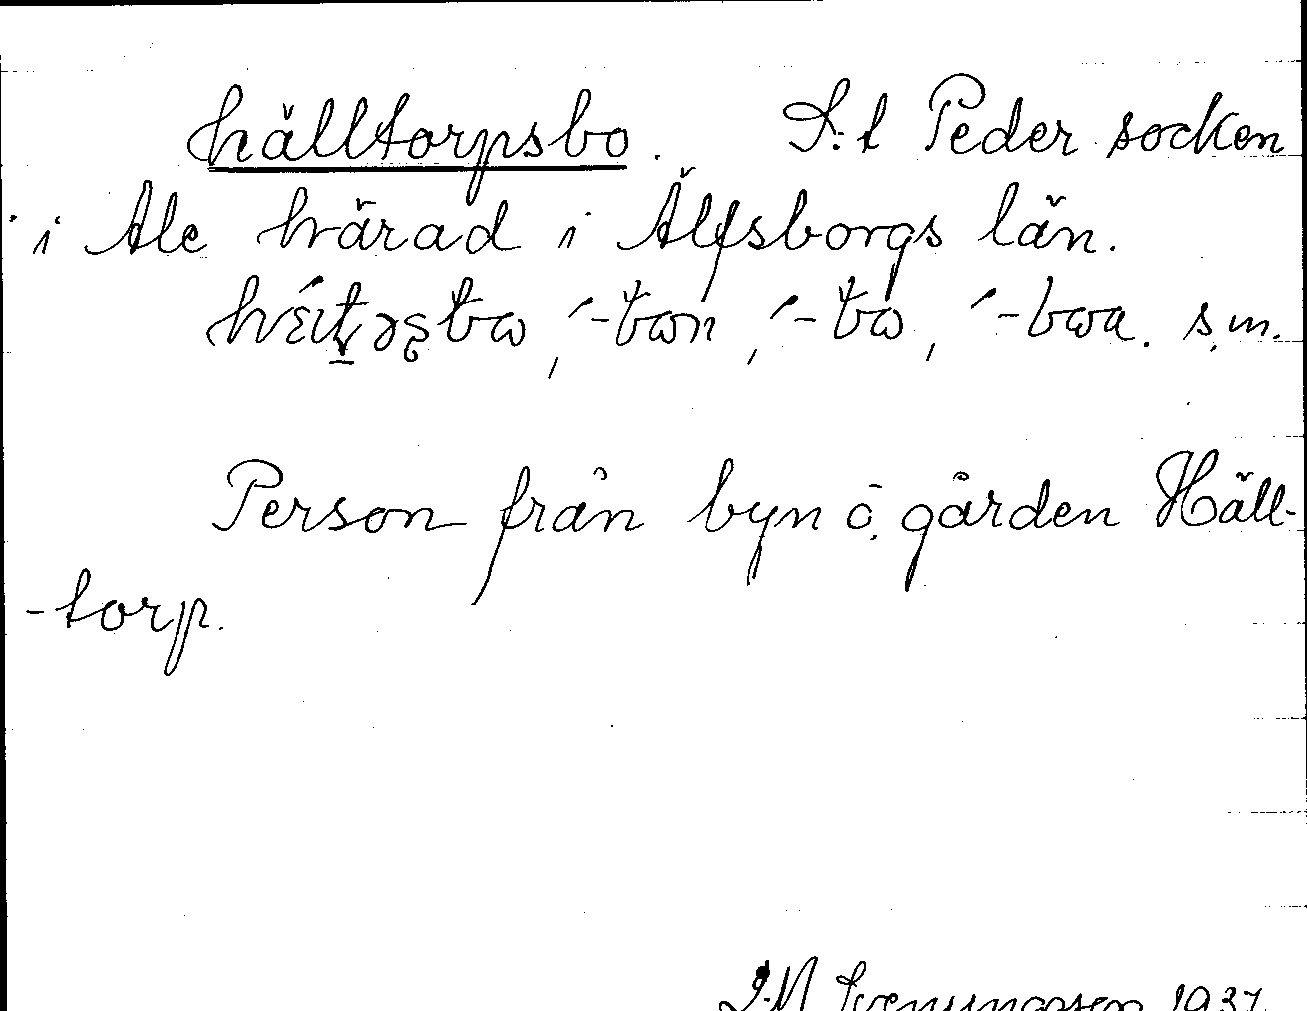 hälltorpsbo. S:t Peder socken
i Ale härad i Älfsborgs län.
-bo, -boa. s.m.
Person från byn o. gården Häll-
-torp.
1937